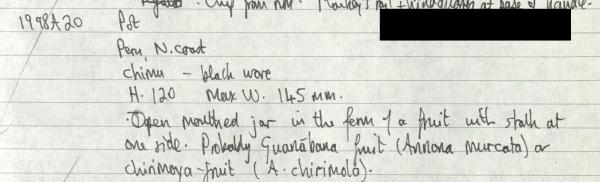 Chip from rim. Monkey's tail + hindquarters at base of handle.
1998A20 Pot
Peru, N. coast
Chimu – black ware
H. 120 Max W. 145 mm.
Open mouthed jar in the form of a fruit with stalk at
one side. Probably Guanábana fruit (Annona muricata) or
chirimoya-fruit (A. chirimola).